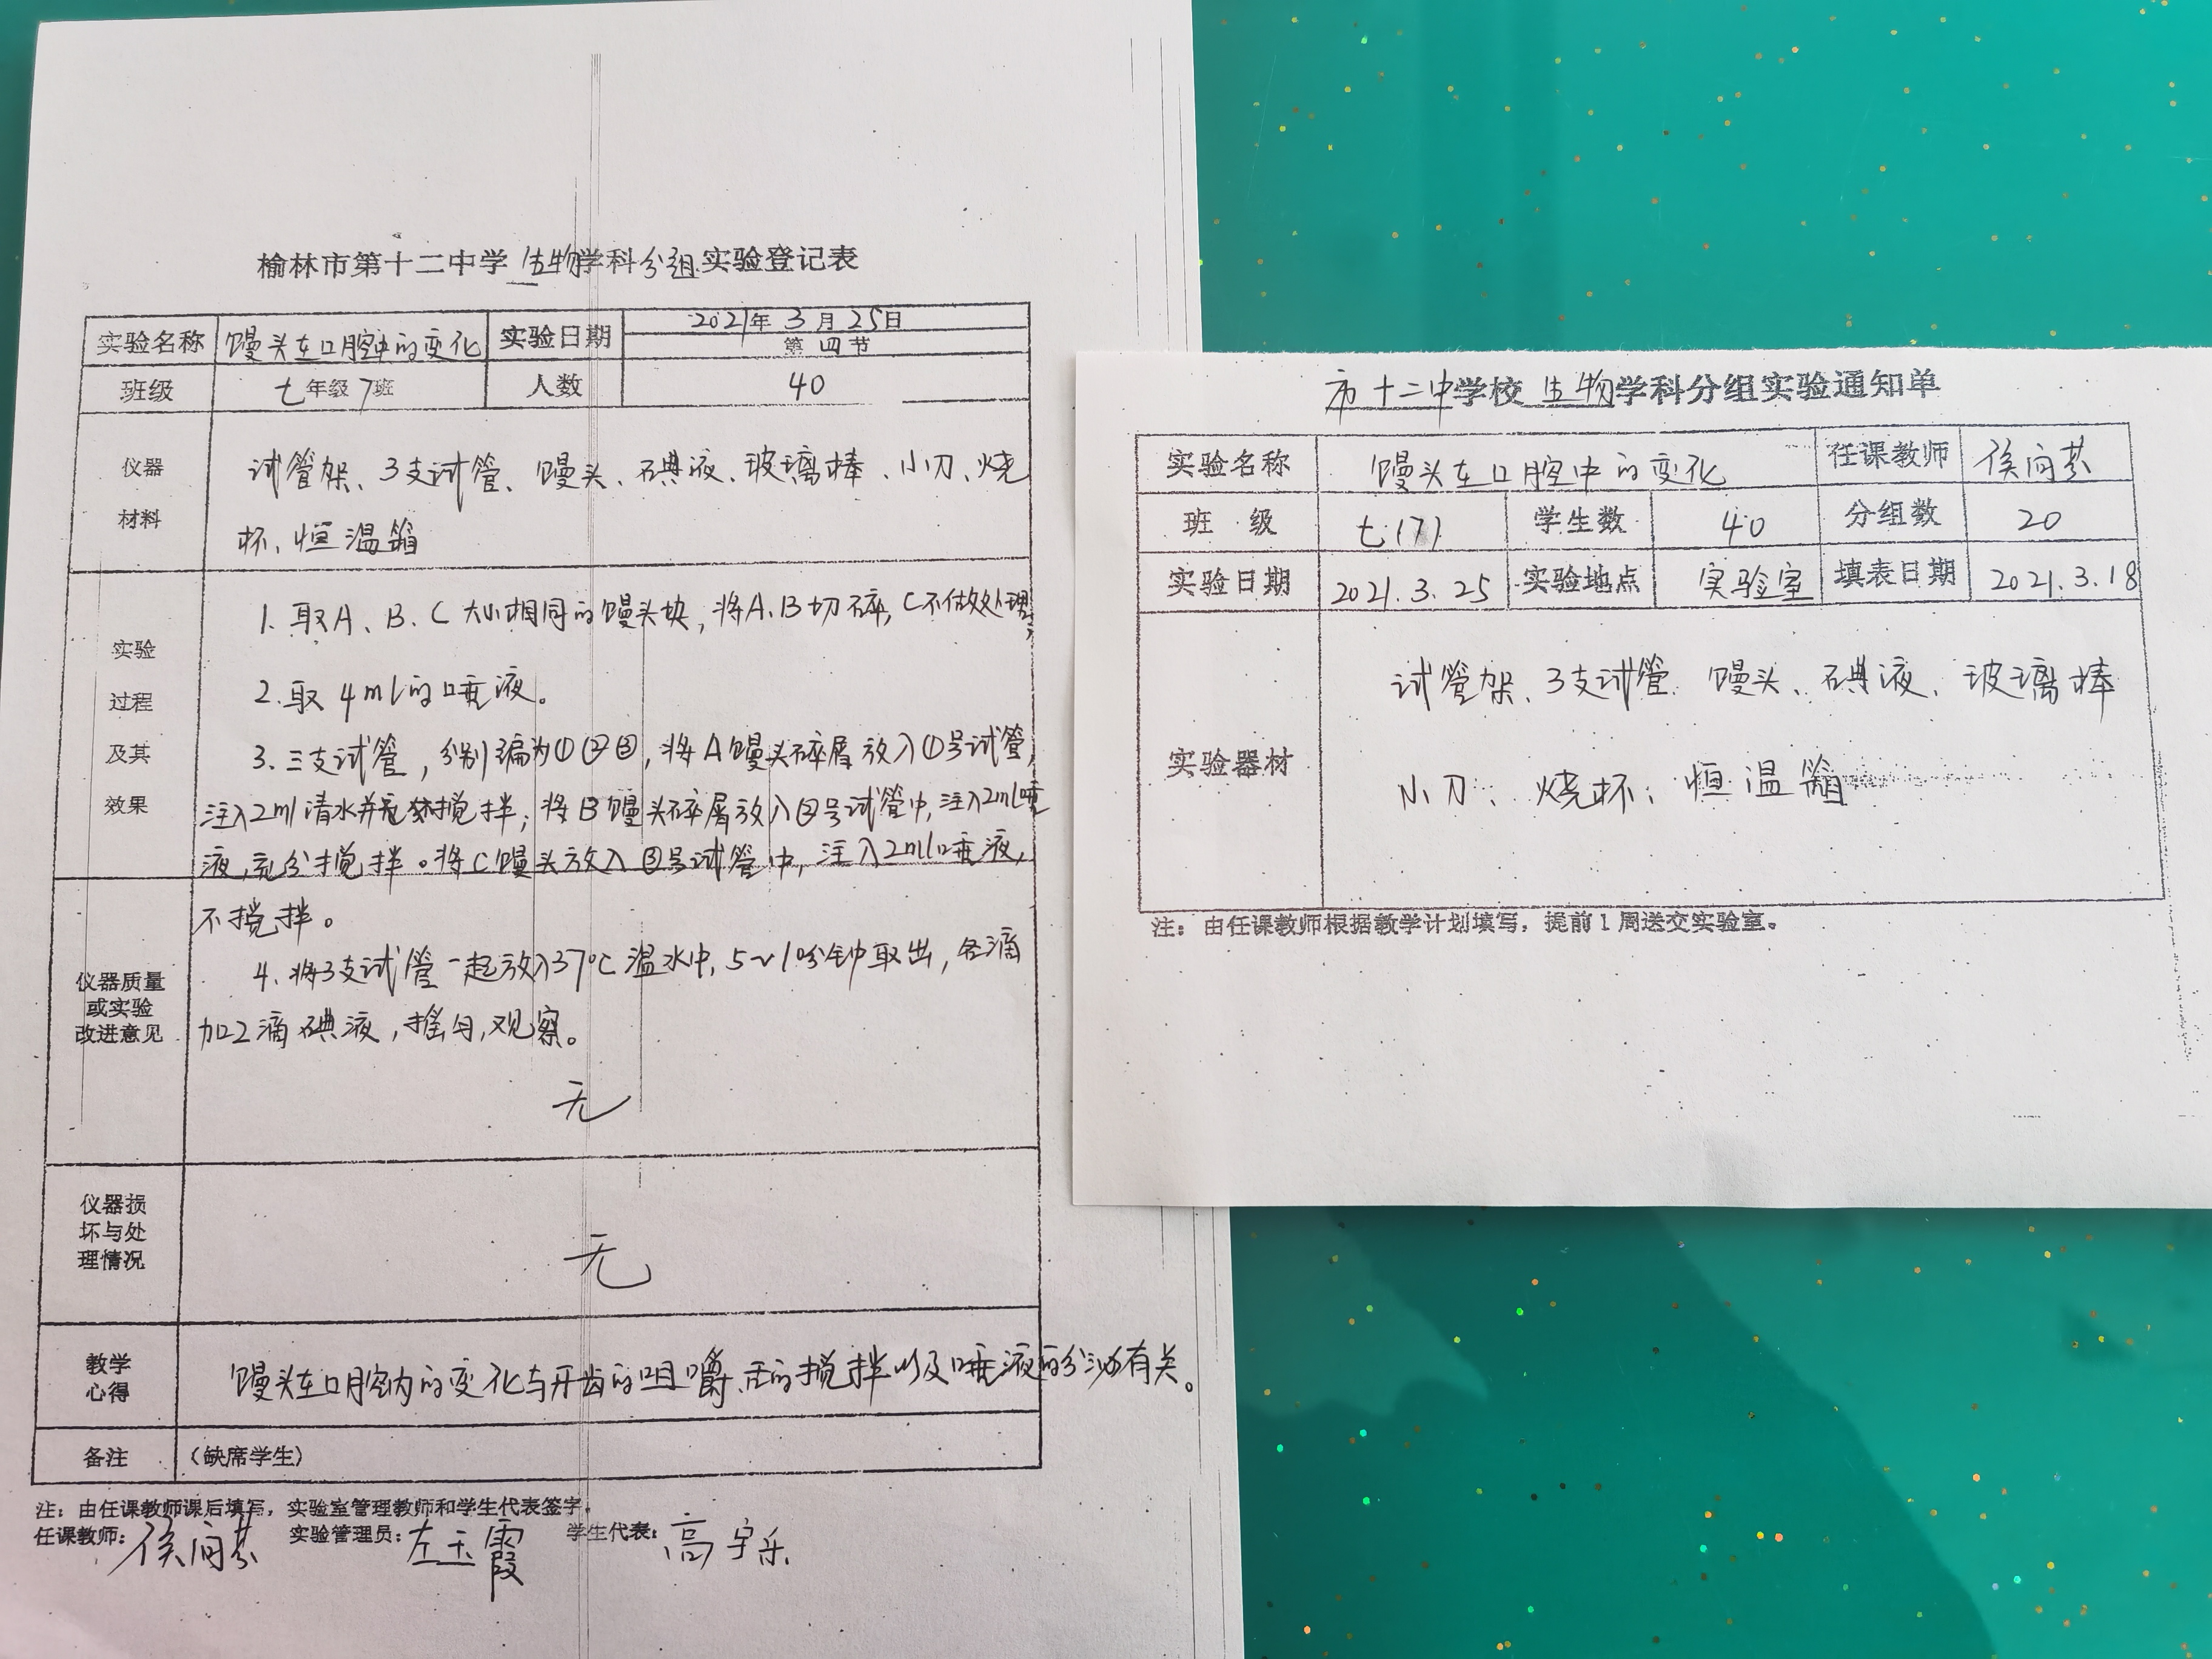 榆林市第十二中学 生物学科分组实验登记表
实验名称 馒头在口腔中的变化 实验日期 2021年3月25日
第四节
班级 七年级7班 人数 40
仪器
材料
试管架、3支试管、馒头、碘液、玻璃棒、小刀、烧
杯、恒温箱
实验
过程
及其
效果
1.取A、B、C大小相同的馒头块,将A、B切碎,C不做处理,
2.取4ml的唾液。
3.三支试管,分别编为①②③,将A馒头碎屑放入①号试管,
注入2ml清水并充分搅拌;将B馒头碎屑放入②号试管中,注入2ml唾
液,充分搅拌。将C馒头放入③号试管中,注入2ml唾液,
不搅拌。
4.将3支试管一起放入37℃温水中,5~10分钟取出,各滴
加2滴碘液,摇匀,观察。
仪器质量
或实验
改进意见
无
仪器损
坏与处
理情况
无
教学
心得
馒头在口腔内的变化与牙齿的咀嚼、舌的搅拌以及唾液的分泌有关。
备注 (缺席学生)
注:由任课教师课后填写,实验室管理教师和学生代表签字。
任课教师: 实验管理员:左玉霞 学生代表:高宇乐
市十二中学校 生物学科分组实验通知单
实验名称 馒头在口腔中的变化 任课教师
班 级 七(7) 学生数 40 分组数 20
实验日期 2021.3.25 实验地点 实验室 填表日期 2021.3.18
实验器材
试管架、3支试管 馒头、碘液、玻璃棒
小刀、烧杯、恒温箱
注:由任课教师根据教学计划填写,提前1周送交实验室。